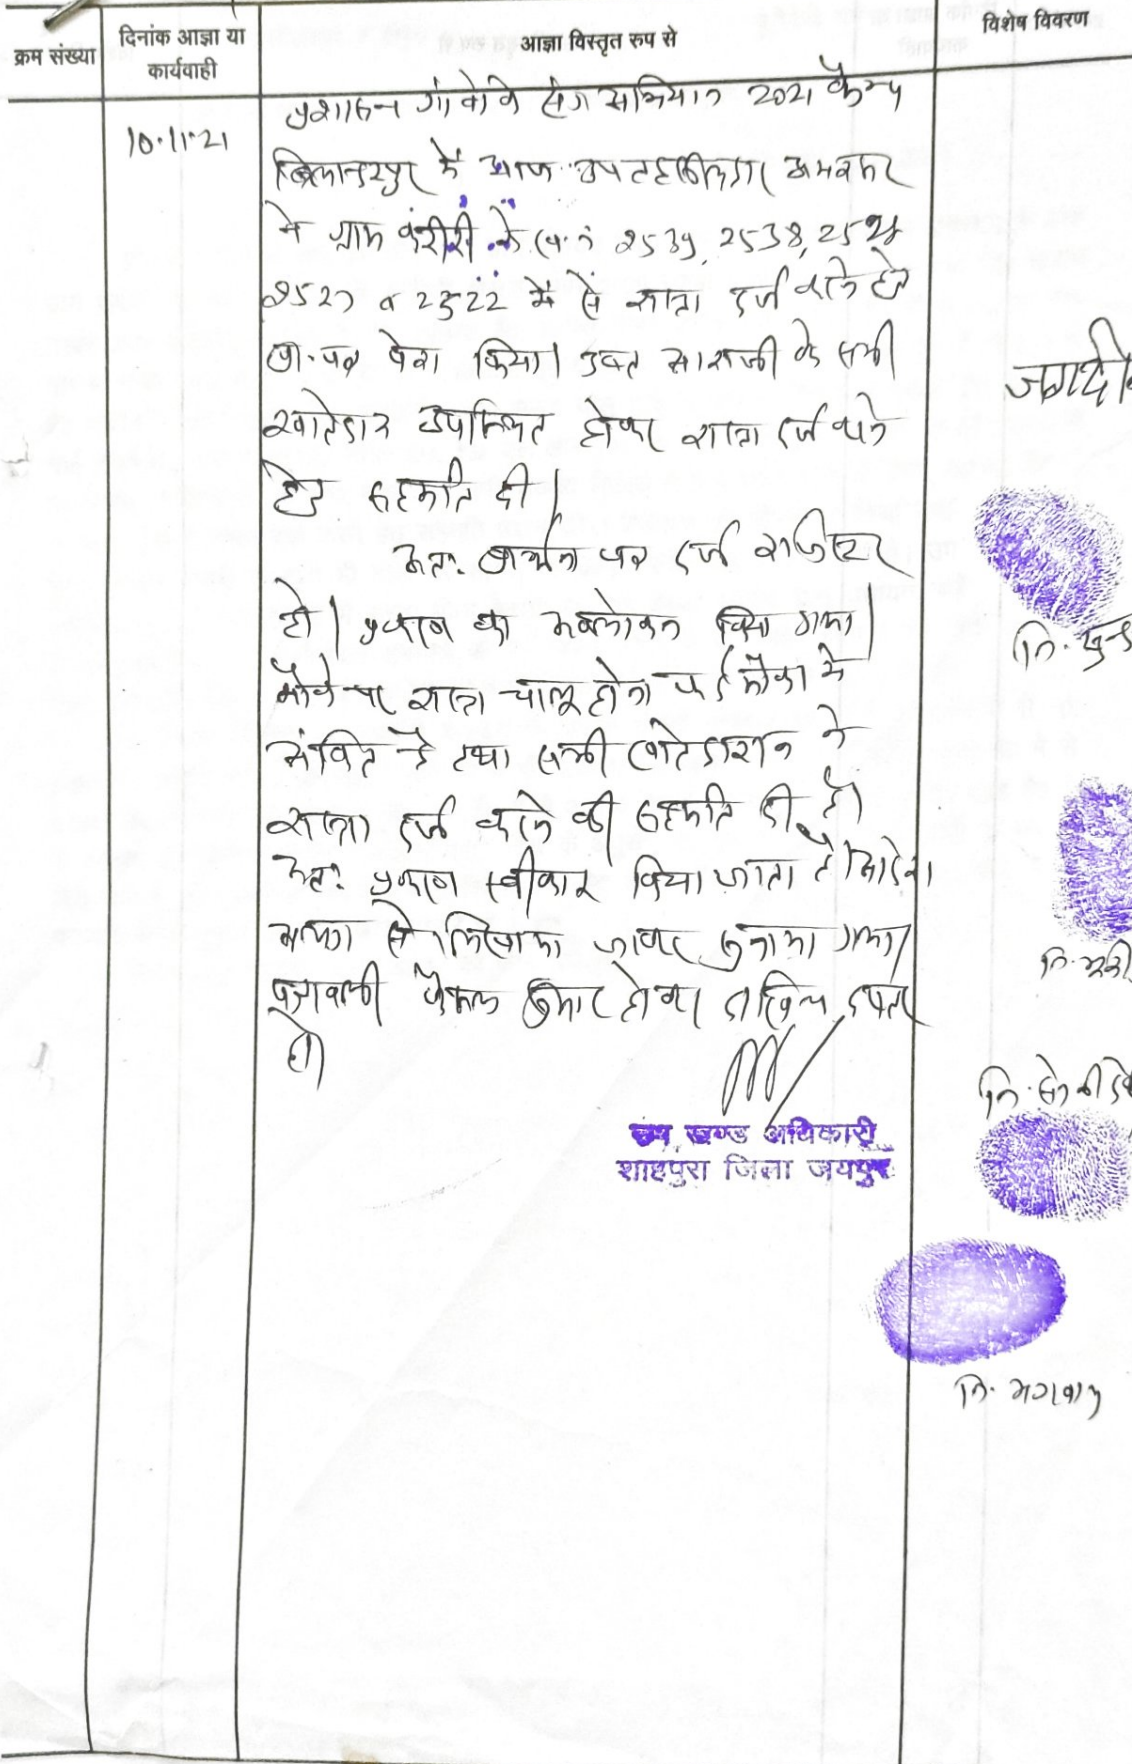 क्रम संख्या
दिनांक आज्ञा या
कार्यवाही
आज्ञा विस्तृत रुप से
विशेष विवरण
10.11.21
प्रशासन गांवो के संग अभियान 2021 कैम्प
में आज उप तहसीलदार अमरसर
ने ग्राम के ख.नं 2539, 2538,
व 2522 में से रास्ता दर्ज करने हेतु
प्रा. पत्र पेश किया। उक्त आराजी के सभी
खातेदार उपस्थित होकर रास्ता दर्ज करने
हेतु सहमति दी।
अतः प्रार्थना पत्र दर्ज रजिस्टर
हो। प्रकरण का अवलोकन किया गया।
मौके पर रास्ता चालू होना फर्द मौका में
अंकित है तथा सभी खातेदारान ने
रास्ता दर्ज करने की सहमति दी है।
अतः प्रकरण स्वीकार किया जाता है। आदेश
आज लिखाया जाकर सुनाया गया।
पत्रावली फैसल शुमार होकर दाखिल दफ्तर
हो।
उप खण्ड अधिकारी
शाहपुरा जिला जयपुर
जगदी
नि.
नि.
नि.
नि. भगवान